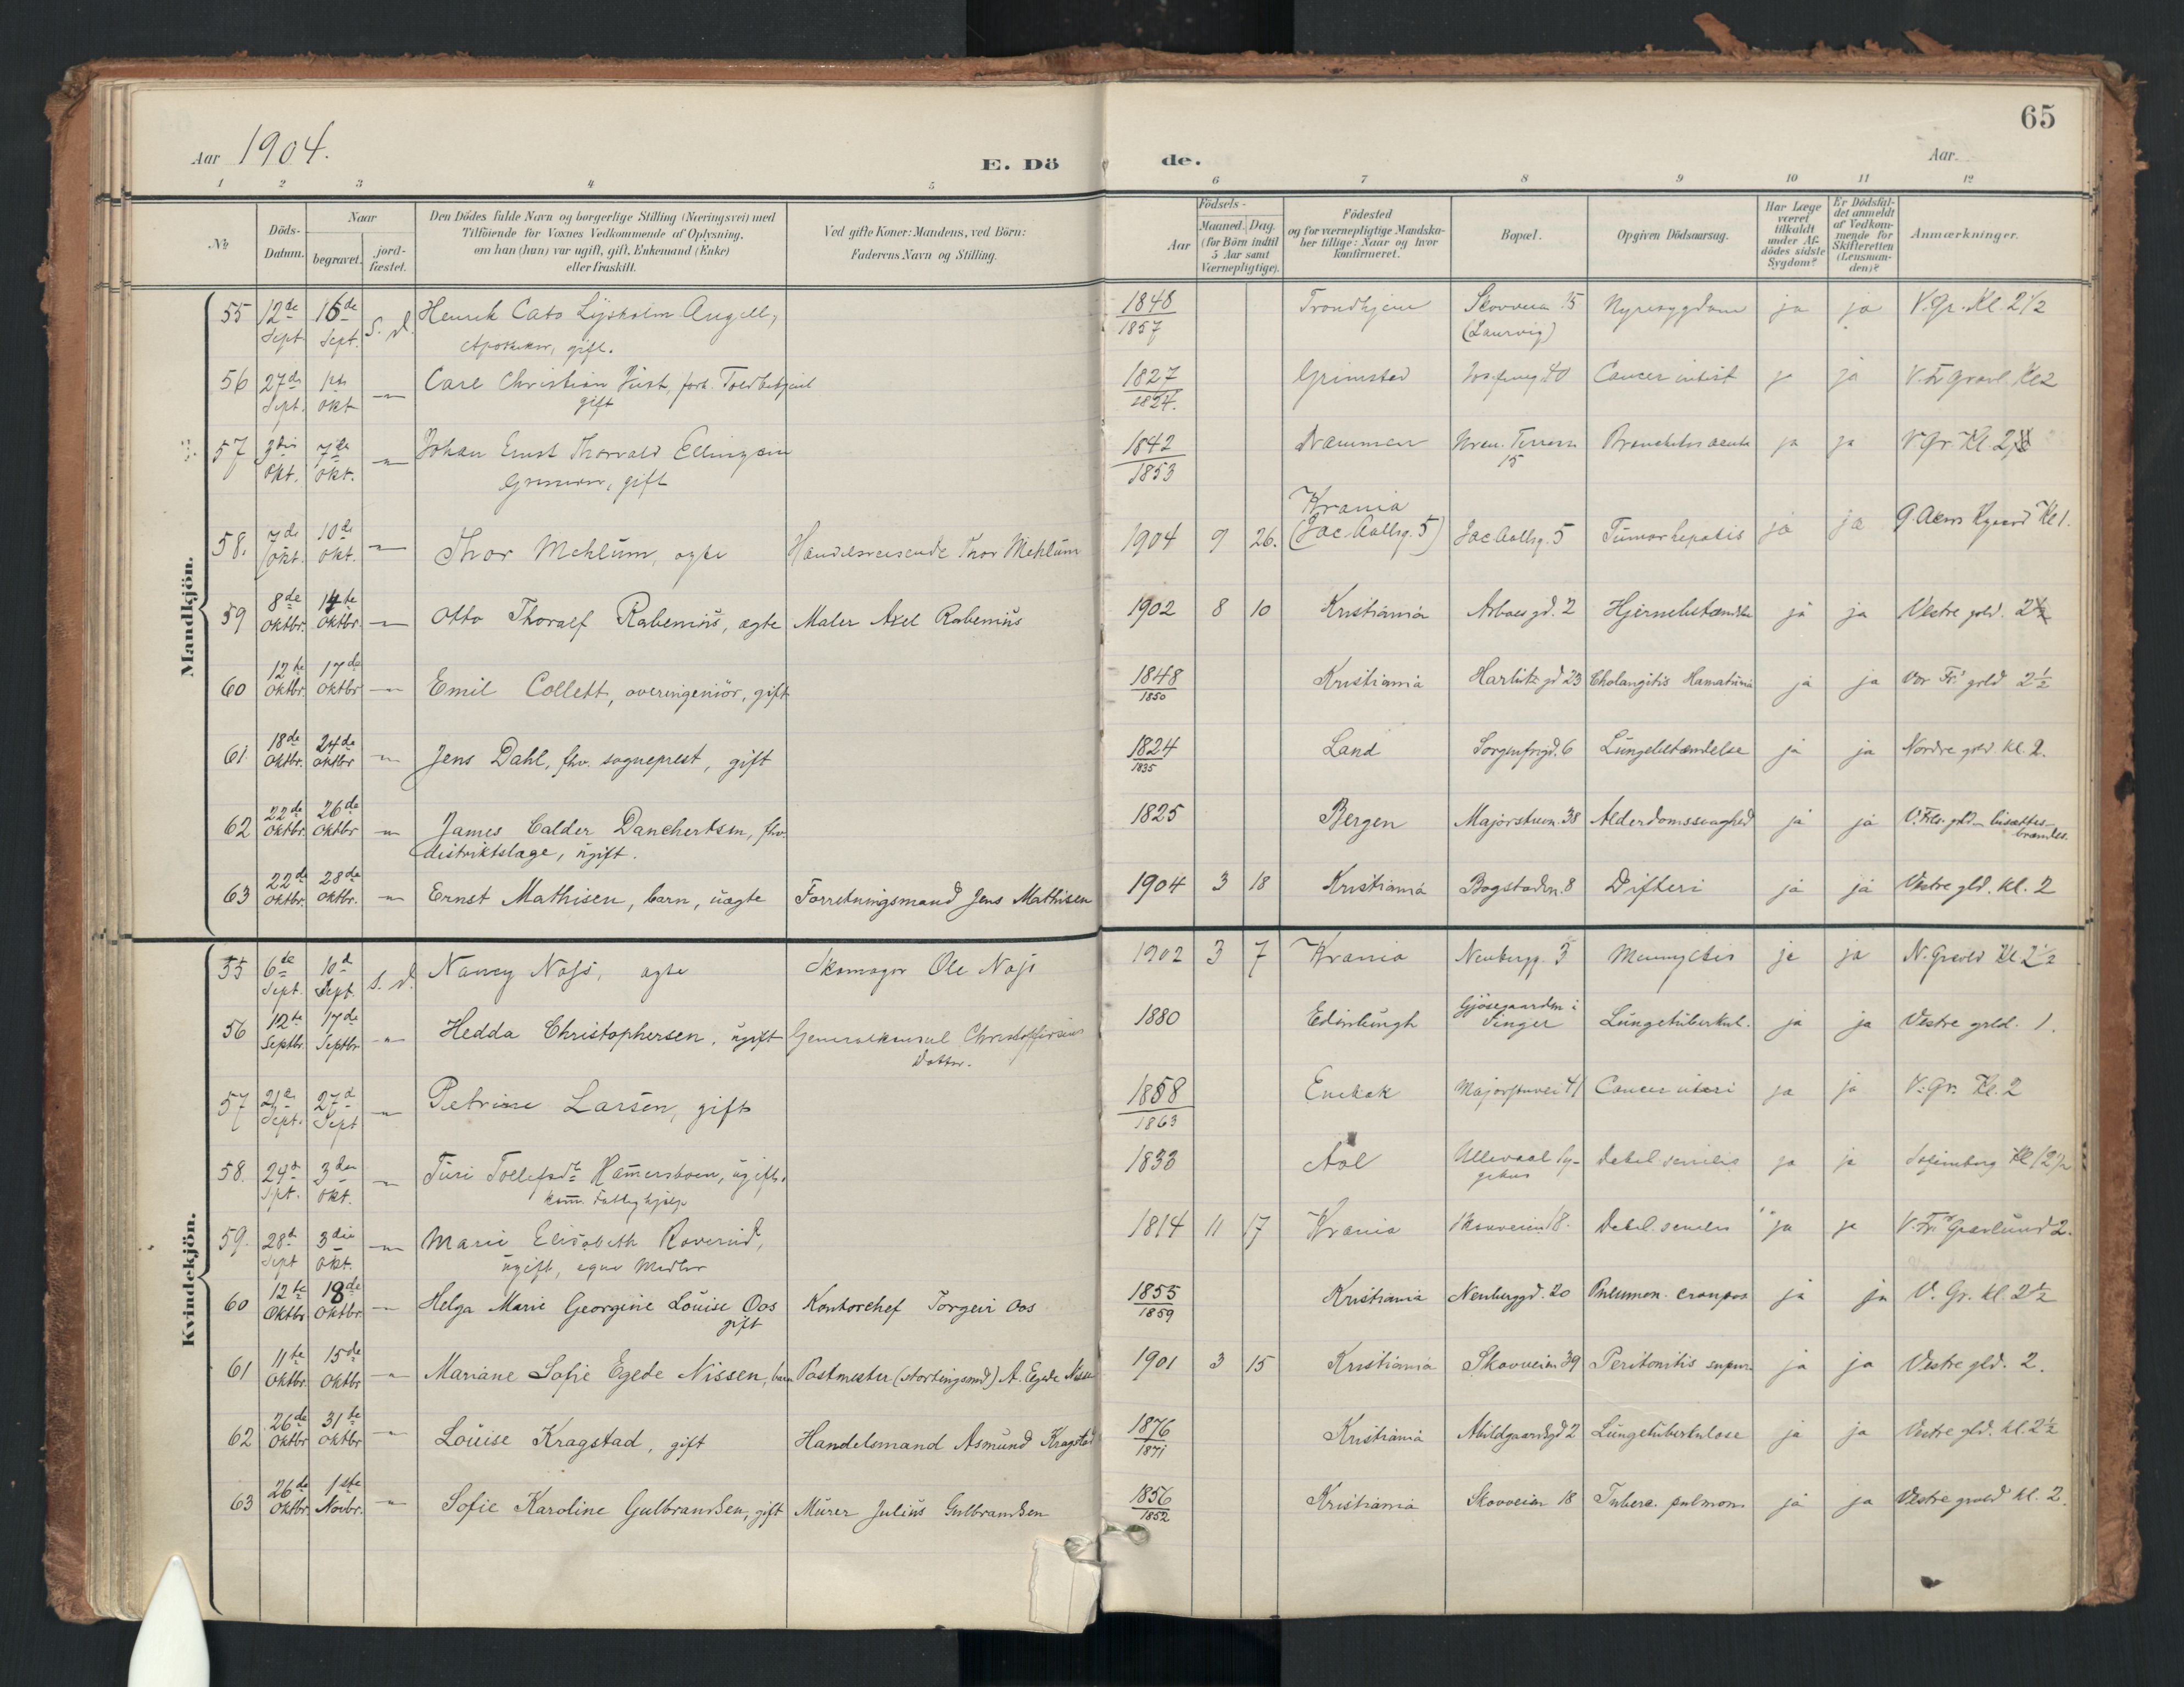 65
Aar 1904.
E. Dö de.
Aar.
1 2 3 4 5 6 7 8 9 10 11 12
No
Döds-Datum.
Naar
begravet.
jord-fæstet.
Den Dödes fulde Navn og borgerlige Stilling (Næringsvei) med
Tilföiende for Voxnes Vedkommende af Oplysning,
om han (hun) var ugift, gift, Enkemand (Enke)
eller fraskilt.
Ved gifte Koner: Mandens, ved Börn:
Faderens Navn og Stilling.
Födsels-
Aar
Maaned. Dag.
(for Börn indtil
5 Aar samt
Værnepligtige).
Födested
og for værnepligtige Mandska-
ber tillige: Naar og hvor
konfirmeret.
Bopæl.
Opgiven Dödsaarsag.
Har Læge
været
tilkaldt
under Af-
dödes sidste
Sygdom?
Er Dödsfal-
det anmeldt
af Vedkom-
mende for
Skifteretten
(Lensman-
den)?
Anmærkninger.
Mandkjön.
55 12de Sept. 16de Sept. S. d. Henrik Cato Lysholm Angell, 1848 Trondhjem Skovvein 15 Nyresygdom ja ja V. Gr. Kl. 2 1/2
Apotheker, gift. 1857 (Laurvig)
56 27de Sept. 1ste Okt -"- Carl Christian Just, forh. Toldbetjent 1827 Grimstad 40 Cancer intest ja ja V. Fr Gravl. Kl 2
gift 1824.
57 3die Okt. 7de Okt. -"- Johan Ernst Thorvald Ellingsen 1842 Drammen Uran. Terrasse Bronchitis acuta ja ja V Gr. Kl 2
gift 1853 15
58. 7de Okt. 10de Okt. -"- Thor Mehlum, ægte Handelsreisende Thor Mehlum 1904 9 26. Krania (Jac. Aallsg. 5) Jac Aallsg. 5 Tumor hepatis ja ja G. Akers Kgaard Kl 1.
59 8de Oktbr. 14te Oktbr. -"- Otto Thoralf Rabenius, ægte Maler Axel Rabenius 1902 8 10 Kristiania Arboesgd. 2 Hjernebetændelse ja ja Vestre gvld. 2
60 12te Oktbr. 17de Oktbr -"- Emil Collett, overingeniör, gift 1848 1850 Kristiania gd 23 Cholangitis Hæmaturia ja ja Vor Fr. gvld 2 1/2
61. 18de Oktbr. 24de Oktbr -"- Jens Dahl, fhv. sogneprest, gift 1824 1835 Land Sorgenfrigd. 6 Lungebetændelse ja ja Nordre gvld. kl. 2.
62 22de Oktbr. 26de Oktbr -"- James Calder Danchertsen, fhv. 1825 Bergen Majorstuen. 38 Alderdomssvaghed ja ja V. Frls. gvld - bisættes-
distriktslæge, ugift. brændes.
63 22de Oktbr. 28de Oktbr. -"- Ernst Mathisen, barn, uægte Forretningsmand Jens Mathisen 1904 3 18 Kristiania Bogstadvn. 8 Difteri ja ja Vestre gld. kl. 2
Kvindekjön.
55 6de Sept. 10d Sept. s. d. Nancy Næss, ægte Skomager Ole Næss 1902 3 7 Krania Neubergg. 3 ja ja N. Gravld Kl 2 1/2
56 12te Septbr. 17de Septbr -"- Hedda Christophersen, ugift Generalkonsul Christoffersens 1880 Edinburgh Gjøsegaarden i Lungetuberkul. ja ja Vestre grld. 1.
Datter. Singer
57 21de Sept. 27d Sept -"- Petrine Larsen, gift 1858 Enebak Majorstuvei 41 Cancer uteri ja ja V. Gr. Kl. 2
1863
58. 29de Spt. 3die Okt. -"- Turi Tollefsdr Hamersboen, ugift, 1833 Aal Ullevaal Sy- Debil. senilis ja ja Kl 12 1/2
kom. Fattighjælp gehus
59. 28d Sept 3die Okt. -"- Marie Elisabeth Roverud, 1814 11 17 Krania 18. Debil. senilis ja ja V. Frs Gravlund 2.
ugift, egne Midler
60 12te Oktbr. 18de Oktbr. -"- Helga Marie Georgine Louise Oos Kontorchef Torgeir Oos 1855 1859 Kristiania Neuberggd. 20 Pneumon. croupos ja ja V. Gr. kl. 2 1/2
gift
61 11te Oktbr. 15de Oktbr -"- Mariane Sofie Egede Nissen, barn Postmester (stortingsmd) A. Egede Nissen 1901 3 15 Kristiania Skovveien 39 Peritonitis supur. ja ja Vestre gld. 2.
62 26de Oktbr 31te Oktbr -"- Louise Kragstad, gift Handelsmand Asmund Kragstad 1876 1871 Kristiania Abildgaardsgd 2 Lungetuberkulose ja ja Vestre gld. kl. 2 1/2
63 26de Oktbr. 1ste Novbr. -"- Sofie Karoline Gulbrandsen, gift Murer Julius Gulbrandsen 1856 1852 Kristiania Skovveien 18 Tuberc. pulmon. ja ja Vestre gravld kl. 2.